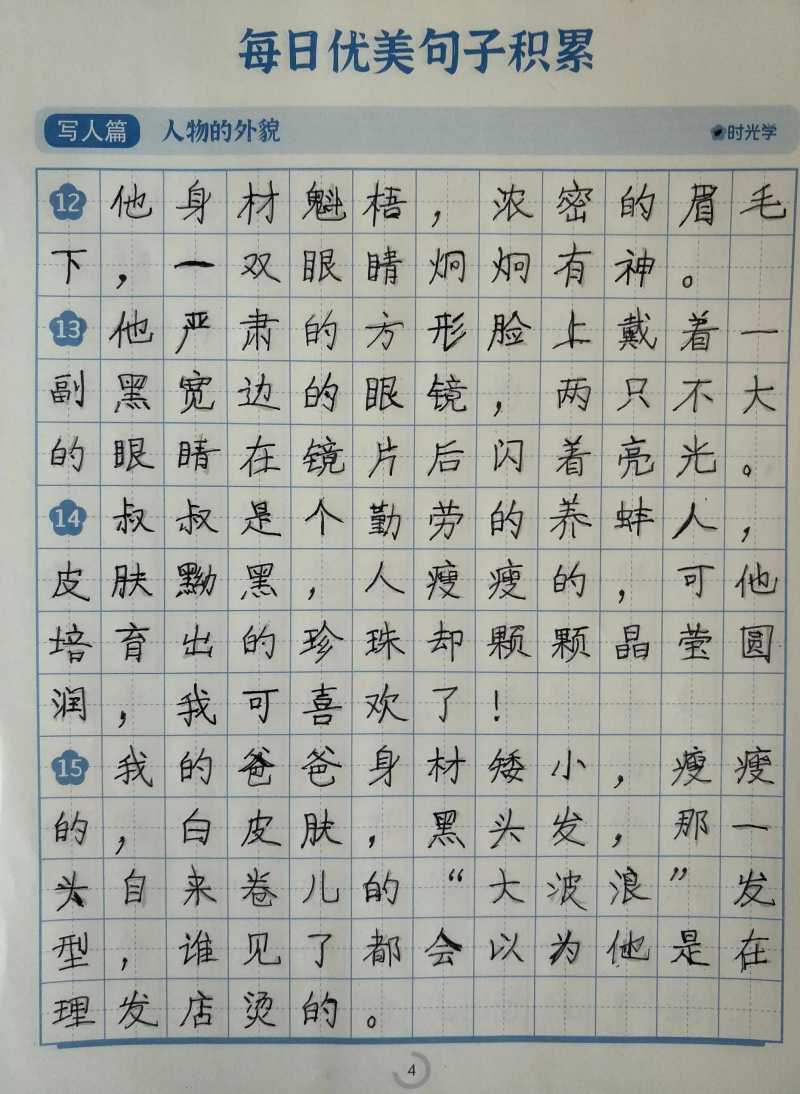 每日优美句子积累
写人篇 人物的外貌 时光学
12 他身材魁梧，浓密的眉毛
下，一双眼睛炯炯有神。
13 他严肃的方形脸上戴着一
副黑宽边的眼镜，两只不大
的眼睛在镜片后闪着亮光。
14 叔叔是个勤劳的养蚌人，
皮肤黝黑，人瘦瘦的，可他
培育出的珍珠却颗颗晶莹圆
润，我可喜欢了！
15 我的爸爸身材矮小，瘦瘦
的，白皮肤，黑头发，那一
头自来卷儿的“大波浪”发
型，谁见了都会以为他是在
理发店烫的。
4